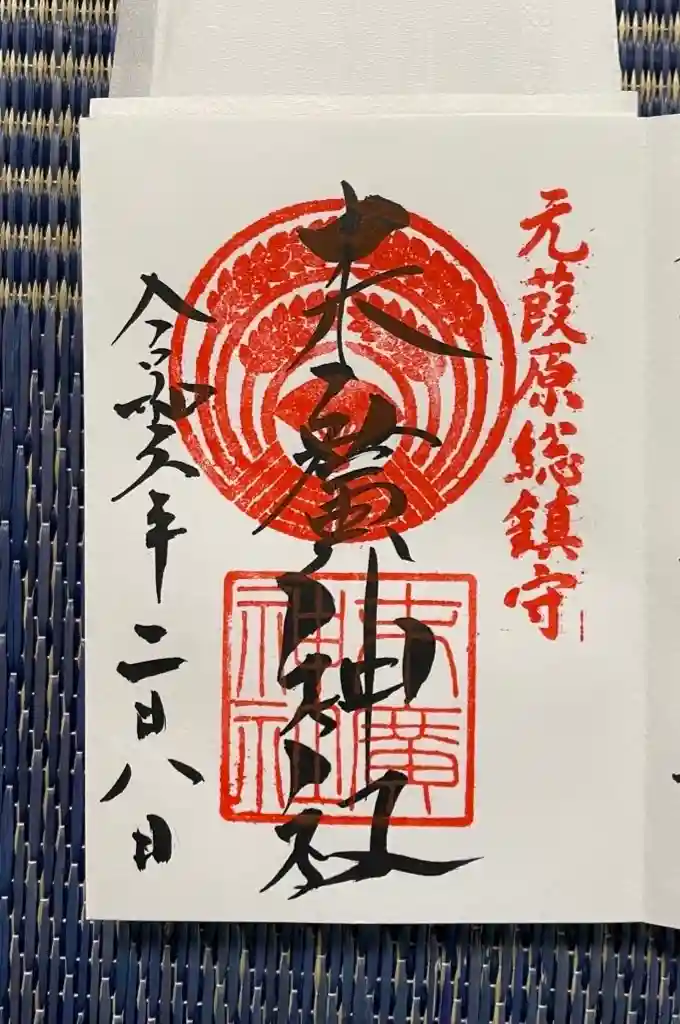 元葭原総鎮守
末廣神社
末廣
神社
令和六年二月八日